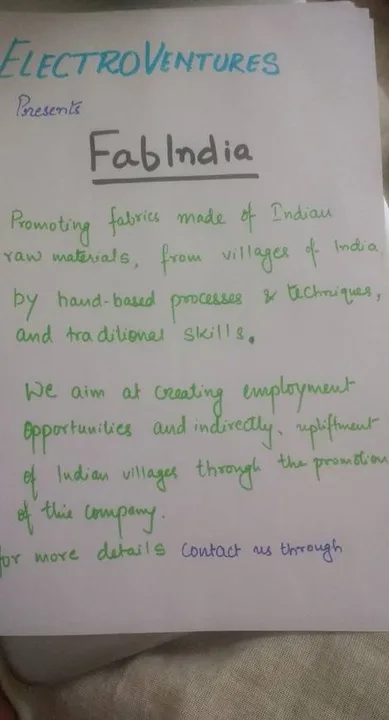 ELECTROVENTURES
Presents
FabIndia
Promoting fabrics made of Indian
raw materials, from villages of India,
by hand-based processes & techniques,
and traditional skills.
We aim at creating employment
opportunities and indirectly, upliftment
of Indian villages through the promotion
of this company.
for more details contact us through